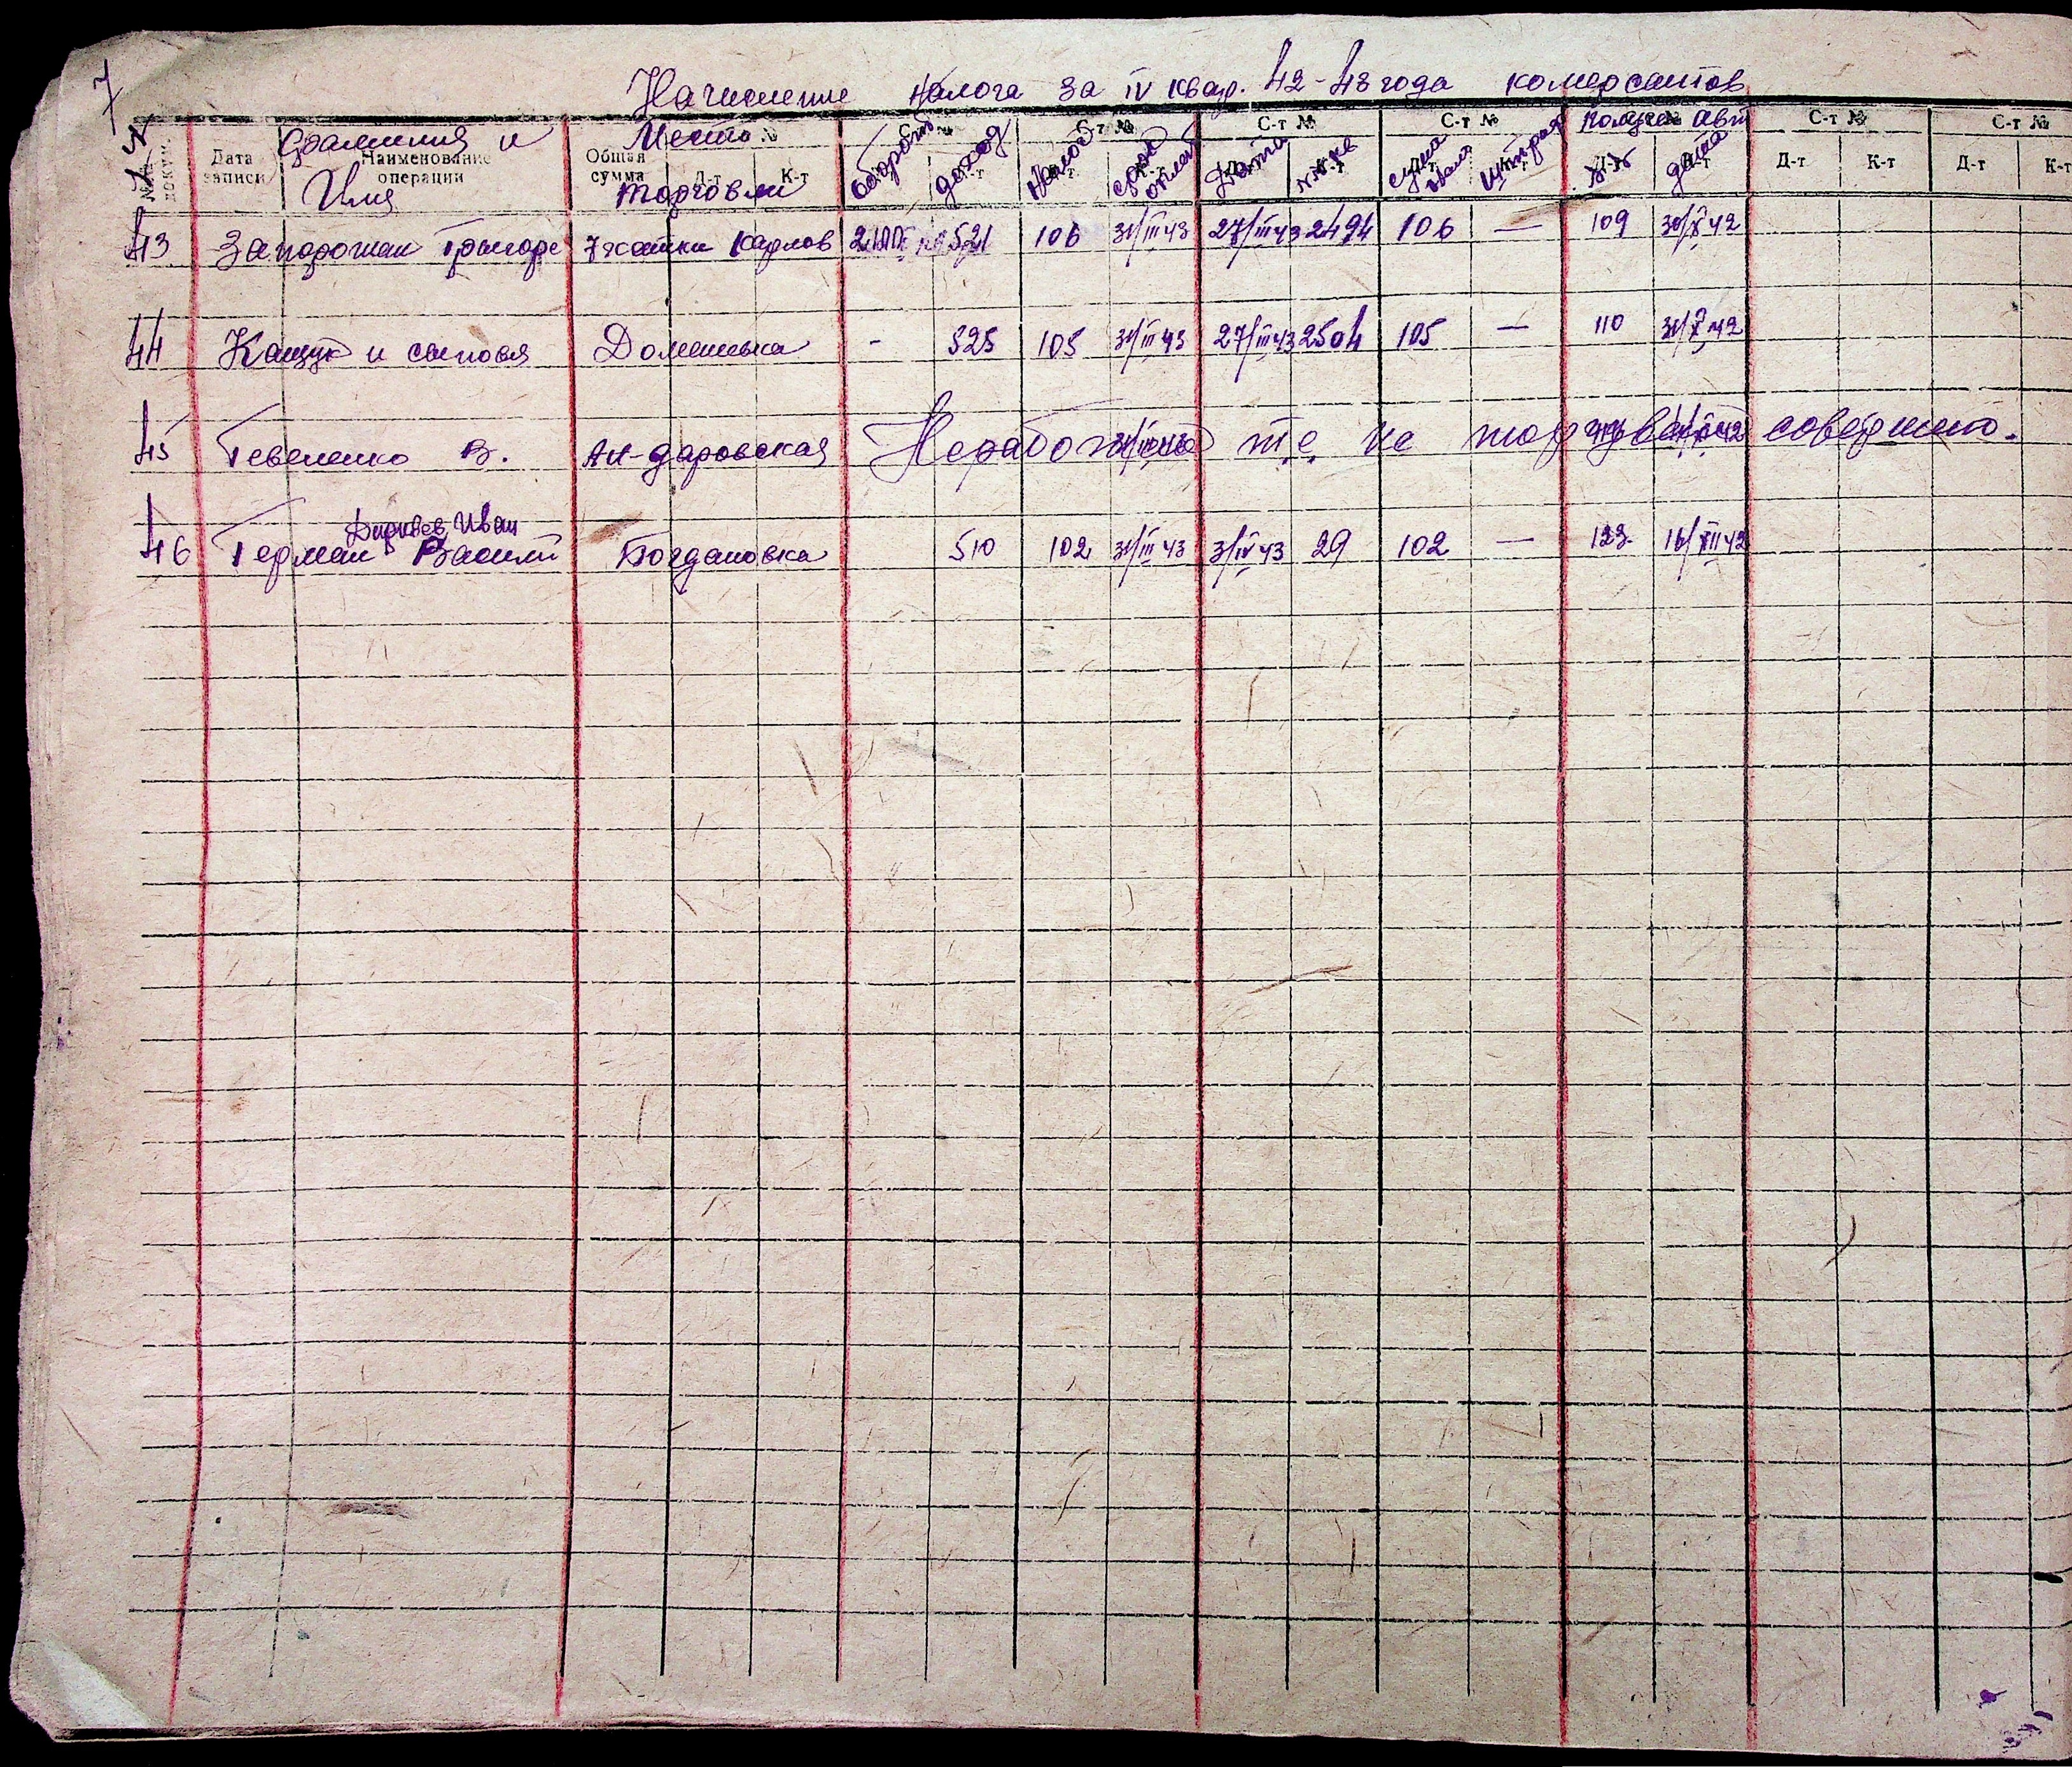 7
Начисление налога за IV квар. 42-43 года комерсантов
№ докум. Дата записи Наименование операции Общая сумма Д-т К-т С-т № Д-т К-т С-т № С-т № С-т № С-т № Д-т К-т С-т № Д-т К-т
Фамилия и Имя Место торговли оборот доход Налог срок оплат Дата №№ кв сумма оплат №№ дата
43 Запорожан Григоре 521 106 31/III 43 27/III 43 2494 106 — 109 30/X 42
44 Кащук и сыновья Доманевка - 525 105 31/III 43 27/III 43 2504 105 — 110 31/X 42
45 Гевеленко В. Ал-даровская Неработает т.е. не торговал совершено.
46 Герман Василий Иван Богдановка 510 102 31/III 43 3/IV 43 29 102 — 123 16/XII 42